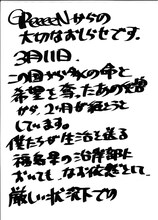 GReeeeNからの
大切なおしらせです。
3月11日、
この国から多くの命と
希望を奪ったあの災害
から、2ヶ月が経とうと
しています。
僕たちが生活を送る
福島県の沿岸部に
おいても、なお依然として
厳しい状況下での